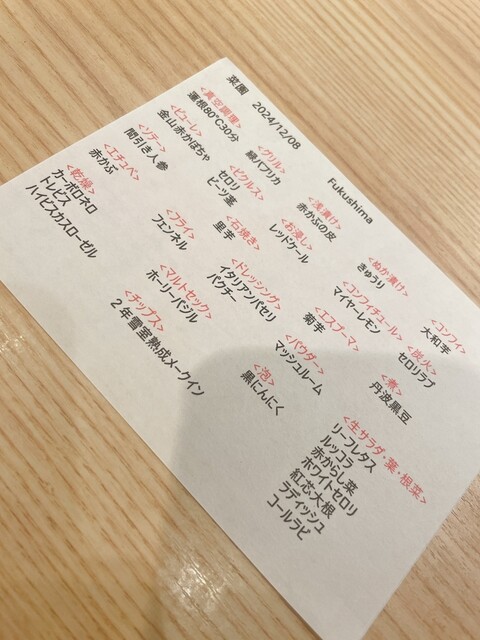 菜園 2024/12/08 Fukushima
<真空調理>
蓮根80℃30分
<グリル>
緑パプリカ
<浅漬け>
赤かぶの皮
<ぬか漬け>
きゅうり
<コンフィ>
大和芋
<ピューレ>
金山赤かぼちゃ
<ピクルス>
セロリ
ビーツ茎
<お浸し>
レッドケール
<コンフィチュール>
マイヤーレモン
<炭火>
セロリラブ
<ソテー>
間引き人参
<石焼き>
里芋
<エスプーマ>
菊芋
<煮>
丹波黒豆
<エチュベ>
赤かぶ
<フライ>
フェンネル
<ドレッシング>
イタリアンパセリ
パクチー
<パウダー>
マッシュルーム
<乾燥>
カーボロネロ
トレビス
ハイビスカスローゼル
<マルトセック>
ホーリーバジル
<泡>
黒にんにく
<チップス>
2年雪室熟成メークイン
<生サラダ・葉・根菜>
リーフレタス
ルッコラ
赤からし菜
ホワイトセロリ
紅芯大根
ラディッシュ
コールラビ